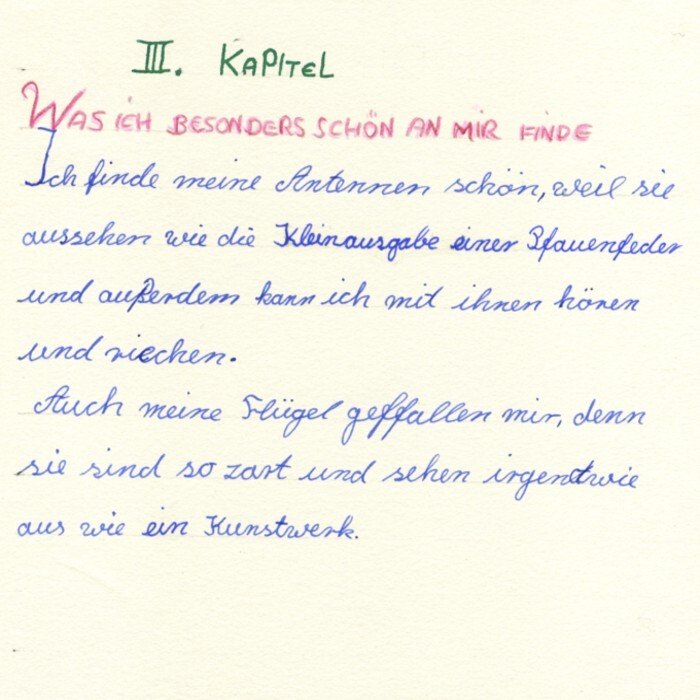 III. KAPITEL
WAS ICH BESONDERS SCHÖN AN MIR FINDE
Ich finde meine Antennen schön, weil sie
aussehen wie die Kleinausgabe einer Pfauenfeder
und außerdem kann ich mit ihnen hören
und riechen.
Auch meine Flügel geffallen mir, denn
sie sind so zart und sehen irgentwie
aus wie ein Kunstwerk.